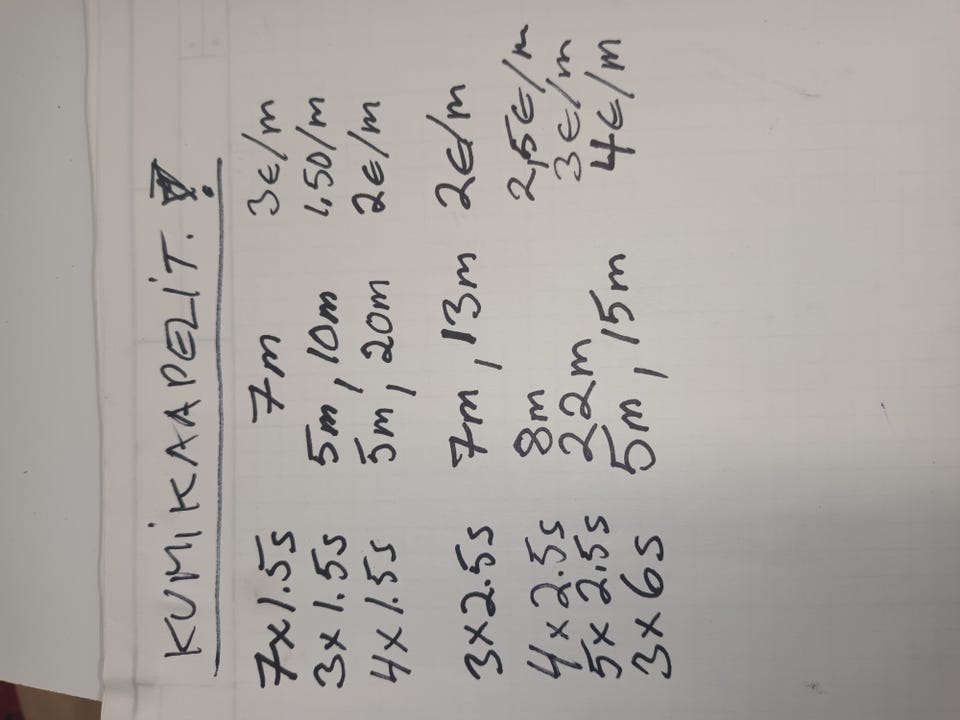 KUMIKAAPELIT. !
7x1.5s 7m 3€/m
3x1.5s 5m, 10m 1,50/m
4x1.5s 5m, 20m 2€/m
3x2.5s 7m, 13m 2€/m
4x2.5s 8m 2,5€/m
5x2.5s 22m 3€/m
3x6s 5m, 15m 4€/m